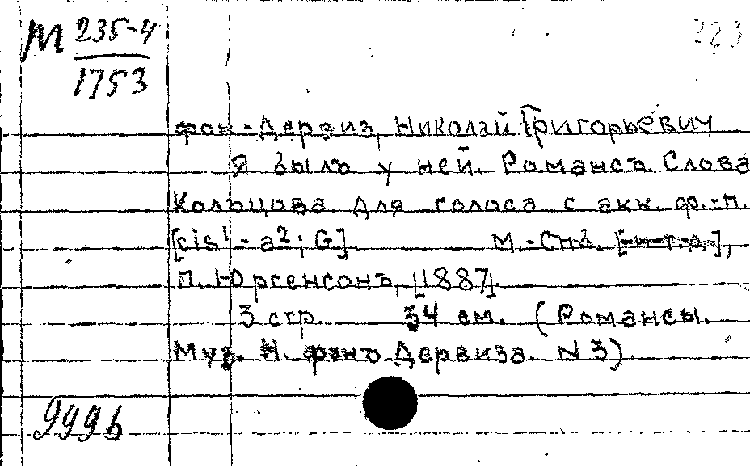 М 235-4
1753
223
фон-Дервиз, Николай Григорьевич
Я былъ у ней. Романсъ Слова
Кольцова Для голоса с акк. ф.-п.
[cis¹-a²; G] М.-Спб. [н-т.д.],
П. Юргенсонъ, [1887].
3 стр. 34 см. (Романсы.
Муз. Н. фонъ Дервиза. N 3)
999b